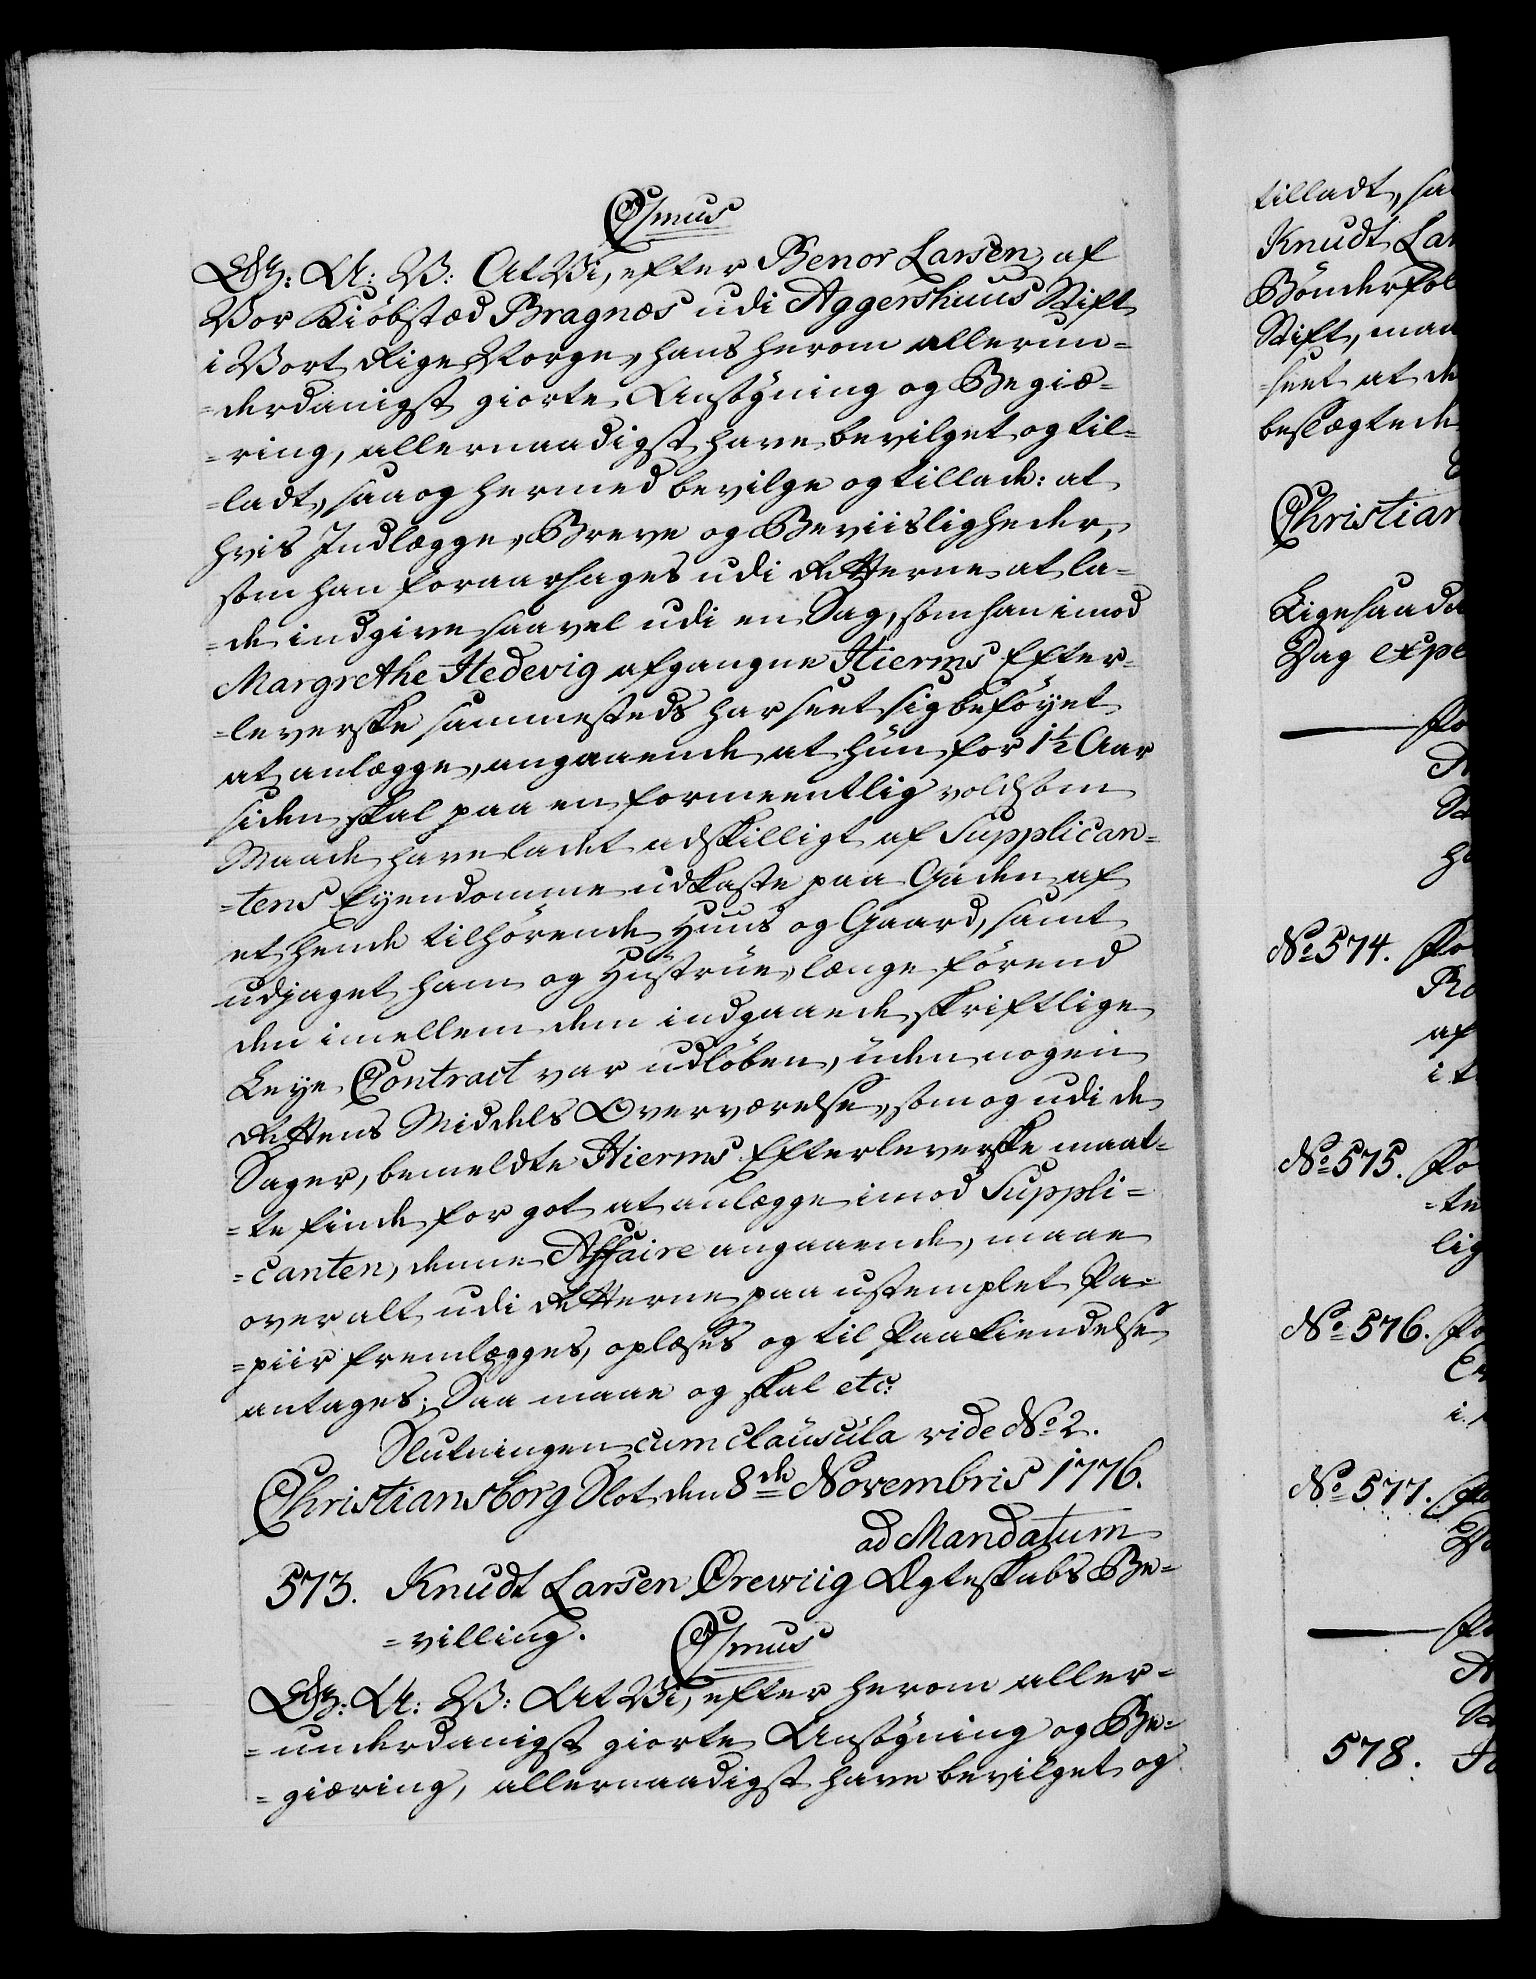 C7mus
G: A: V: At Vi, efter Benor Larsen af
Vor Kiöbstæd Bragnæs udi Aggershuus Stift
i Vort Rige Norge, hans herom allerun-
-derdanigst giorte Ansøgning og Begiæ-
-ring, allernaadigst have bevilget og til-
-ladt, saa og hermed bevilge og tillade: at
hvis Indlægge, Breve og Beviisligheder,
som han foraarsages udi Retterne at la-
-de indgive saavel udi en Sag, som han imod
Margrethe Hedevig afgangne Hierms Efter-
-leverske sammesteds har seet sig beföyet
at anlægge, angaaende at hun for 1½ Aar
siden skal paa en formeentlig voldsom
Maade have ladet adskilligt af Supplican-
-tens Eyendomme udkaste paa Gaden af
et hende tilhörende Huus og Gaard, samt
udjaget ham og Hustrue, længe förend
den imellem dem indgaaede skriftlige
Leye Contract var udlöben, uden nogen
Rettens Middels Overværelse, som og udi de
Sager, bemeldte Hierms Efterleverske maat-
-te finde for got at anlægge imod Suppli-
-canten, denne Affaire angaaende, maae
overalt udi Retterne paa ustemplet Pa-
-piir fremlægges, oplæses og til Paakiendelse
antages; Saa maae og skal etc:
Slutningen cum clausula vide No 2.
Christiansborg Slot den 8de Novembris 1776.
ad Mandatum
573. Knudt Larsen Örewiig Ægteskabs Be-
-villing.
C7mus
G: A: V: At Vi, efter herom aller-
-underdanigst giorte Ansøgning og Be-
-giæring, allernaadigst have bevilget og
tilladt, saa
Knudt Lar
Bönderfol
Stift, maa
-seet at de
beslægtede
Christian
Ligesaada
Dag expe
No 574.
af
No 575.
-te
lig
No 576.
No 577.
578.